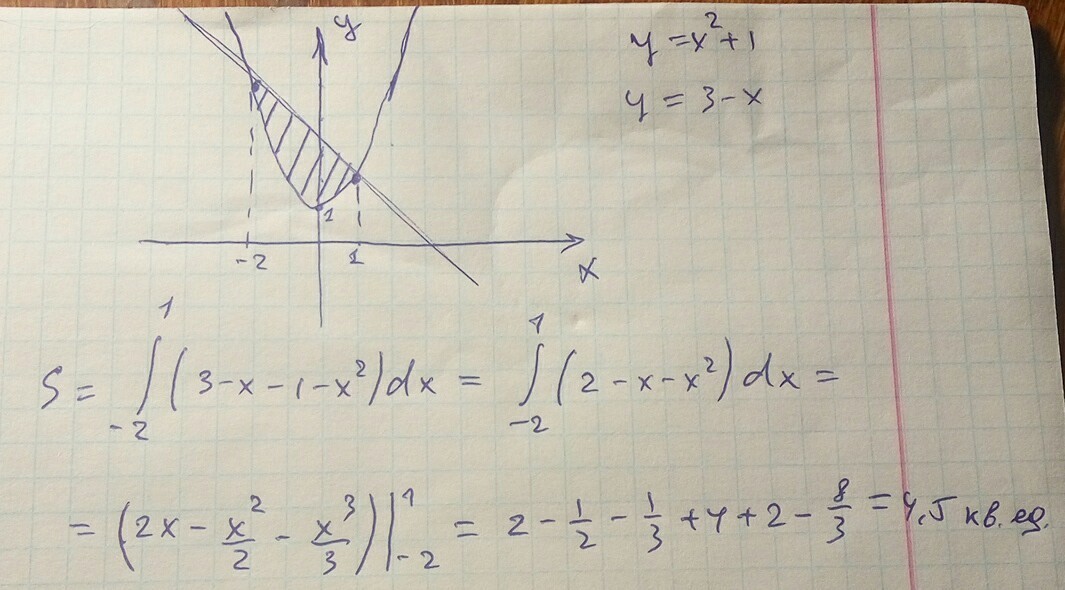 y
y = x² + 1
y = 3 - x
1
-2
1
x
S = ∫₋₂¹ (3 - x - 1 - x²) dx = ∫₋₂¹ (2 - x - x²) dx =
= (2x - x²/2 - x³/3)|₋₂¹ = 2 - 1/2 - 1/3 + 4 + 2 - 8/3 = 4,5 кв. ед.